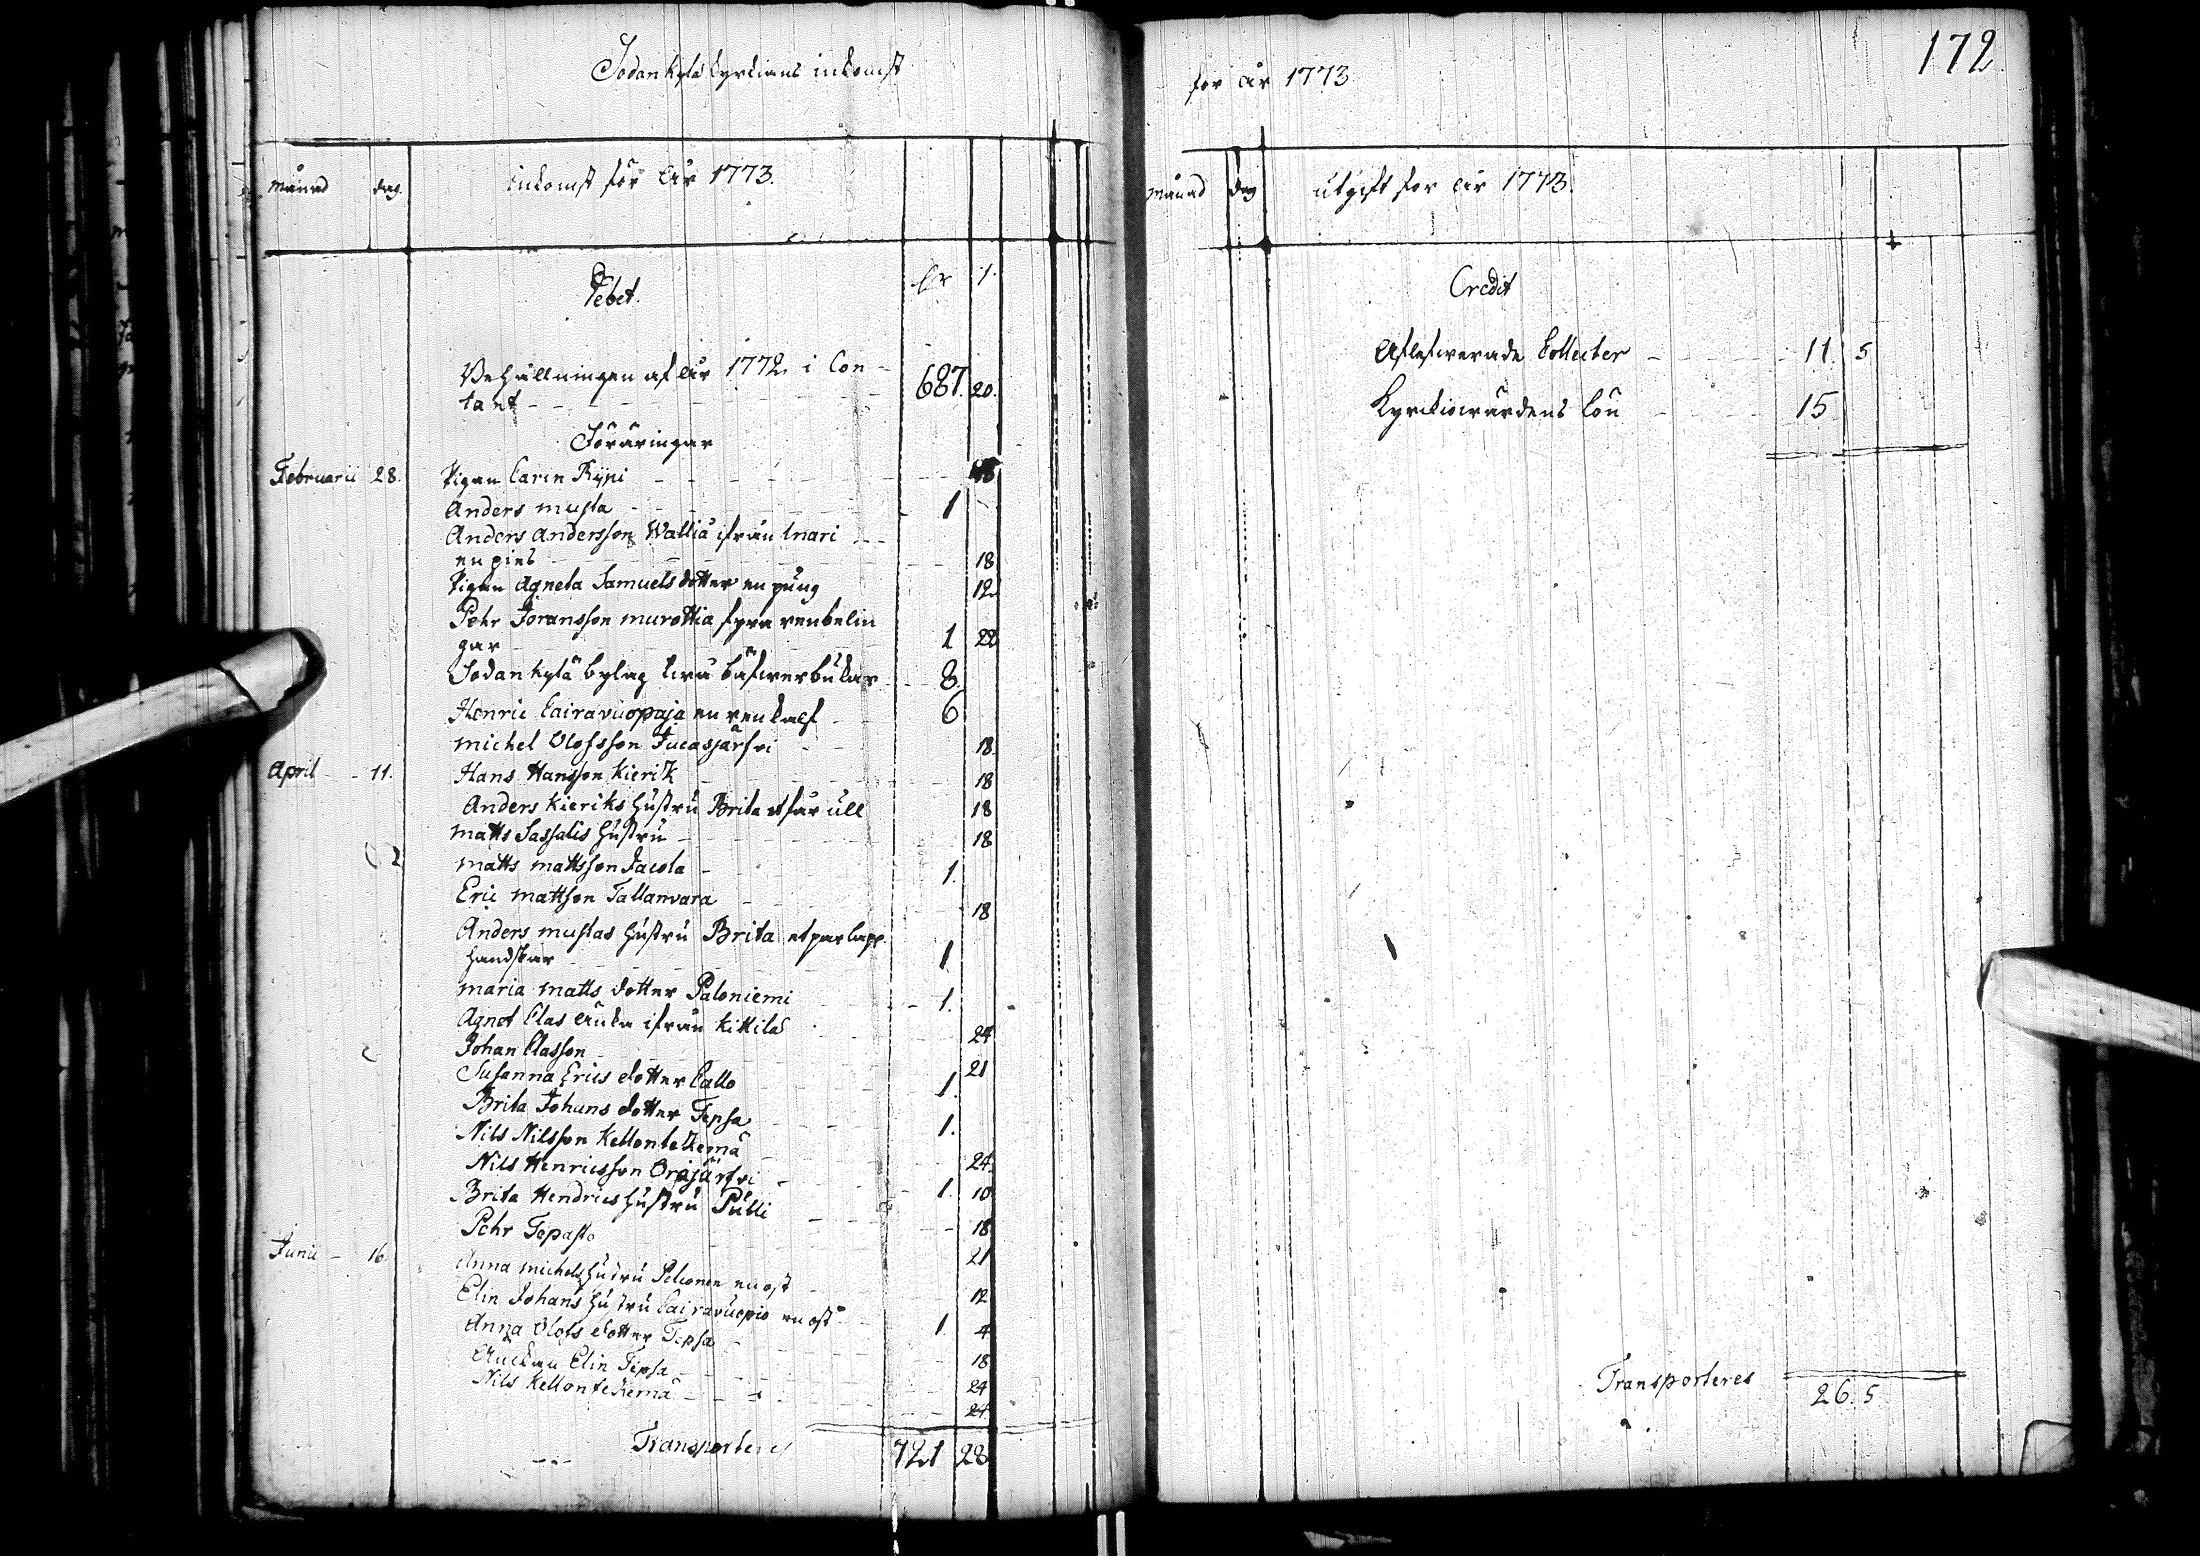 Sodankylä kyrkians inkomst
månad dag. inkomst för åhr 1773.
Debet. dr /.
Behållningen af åhr 1772 i Con-
tant - - - 687. 20.
Föräringar
Februarii 28. Pigan Carin Rÿpi - - -
Anders musta - - - 1
Anders Andersson Wallia ifrån Inari - - -
en pies - - - 18
Pigan Agneta Samuels dotter en pung 12
Pehr Joransson murottia fyra renbelin
gar - - - 1 22
Sodankylä bylag twå bäfwerbukar - - 8
Henric Cairavuopaja en renkalf - - 6
michel Olofsson Jucasjärfvi - - 18
April - - 11. Hans Hansson Kierik - - - 18
Anders Kieriks hustru Brita et får ull 18
matts Sassalis hustru - - - 18
matts mattsson Jacola - 1.
Eric mattson Tallanvara - - 18
Anders mustas hustru Brita et par lapp
handskar - - - 1
maria matts dotter Paloniemi - - 1.
Agnet Clas änka ifrån Kittilä . 24
Johan Classon - - - 21
Susanna Erics dotter Callo - - 1.
Brita Johans dotter Tepsa - - - 1.
Nils Nilsson Kellontekemä - - 24.
Nils Henricsson Orajärfvi - - - 1. 10
Brita Hendrics hustru Pulli - - - 18
Pehr Tepasto - 21
Junii - 16 Anna michels hustru Pelconen en ost - 12
Elin Johans hustru Cairavuopio en ost - - 1. 4
Anna Olofs dotter Tepsa - - - 18
Änckan Elin Tepsa - - - 24
Nils Kellontekemä - - - 24
Transporteres 721 28
172.
for år 1773
månad dag utgift for åhr 1773.
Credit
Aflefwerade Collecter - - - - 11. 5
Kyrckiowärdens lön - - - 15
Transporteres 26. 5